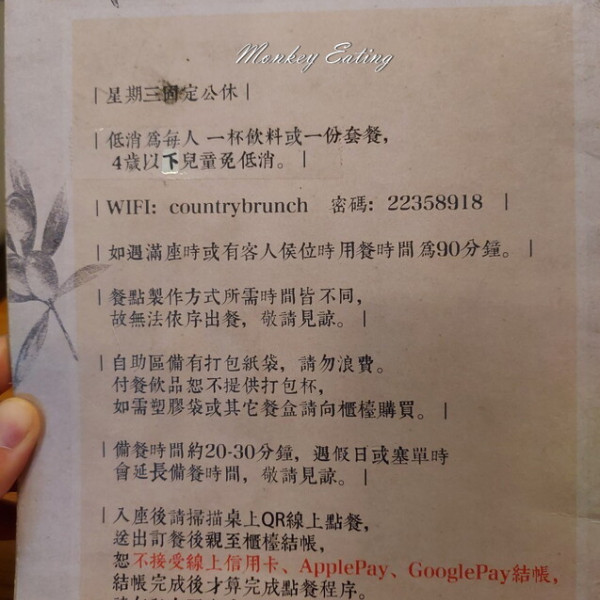 Monkey Eating
| 星期三固定公休 |
| 低消為每人 一杯飲料或一份套餐,
4歲以下兒童免低消。 |
| WIFI: countrybrunch 密碼: 22358918 |
| 如遇滿座時或有客人侯位時用餐時間為90分鐘。 |
| 餐點製作方式所需時間皆不同,
故無法依序出餐, 敬請見諒。 |
| 自助區備有打包紙袋, 請勿浪費。
付餐飲品恕不提供打包杯,
如需塑膠袋或其它餐盒請向櫃檯購買。 |
| 備餐時間約20-30分鐘, 遇假日或塞單時
會延長備餐時間, 敬請見諒。 |
| 入座後請掃描桌上QR線上點餐,
送出訂餐後親至櫃檯結帳,
恕不接受線上信用卡、ApplePay、GooglePay結帳,
結帳完成後才算完成點餐程序。